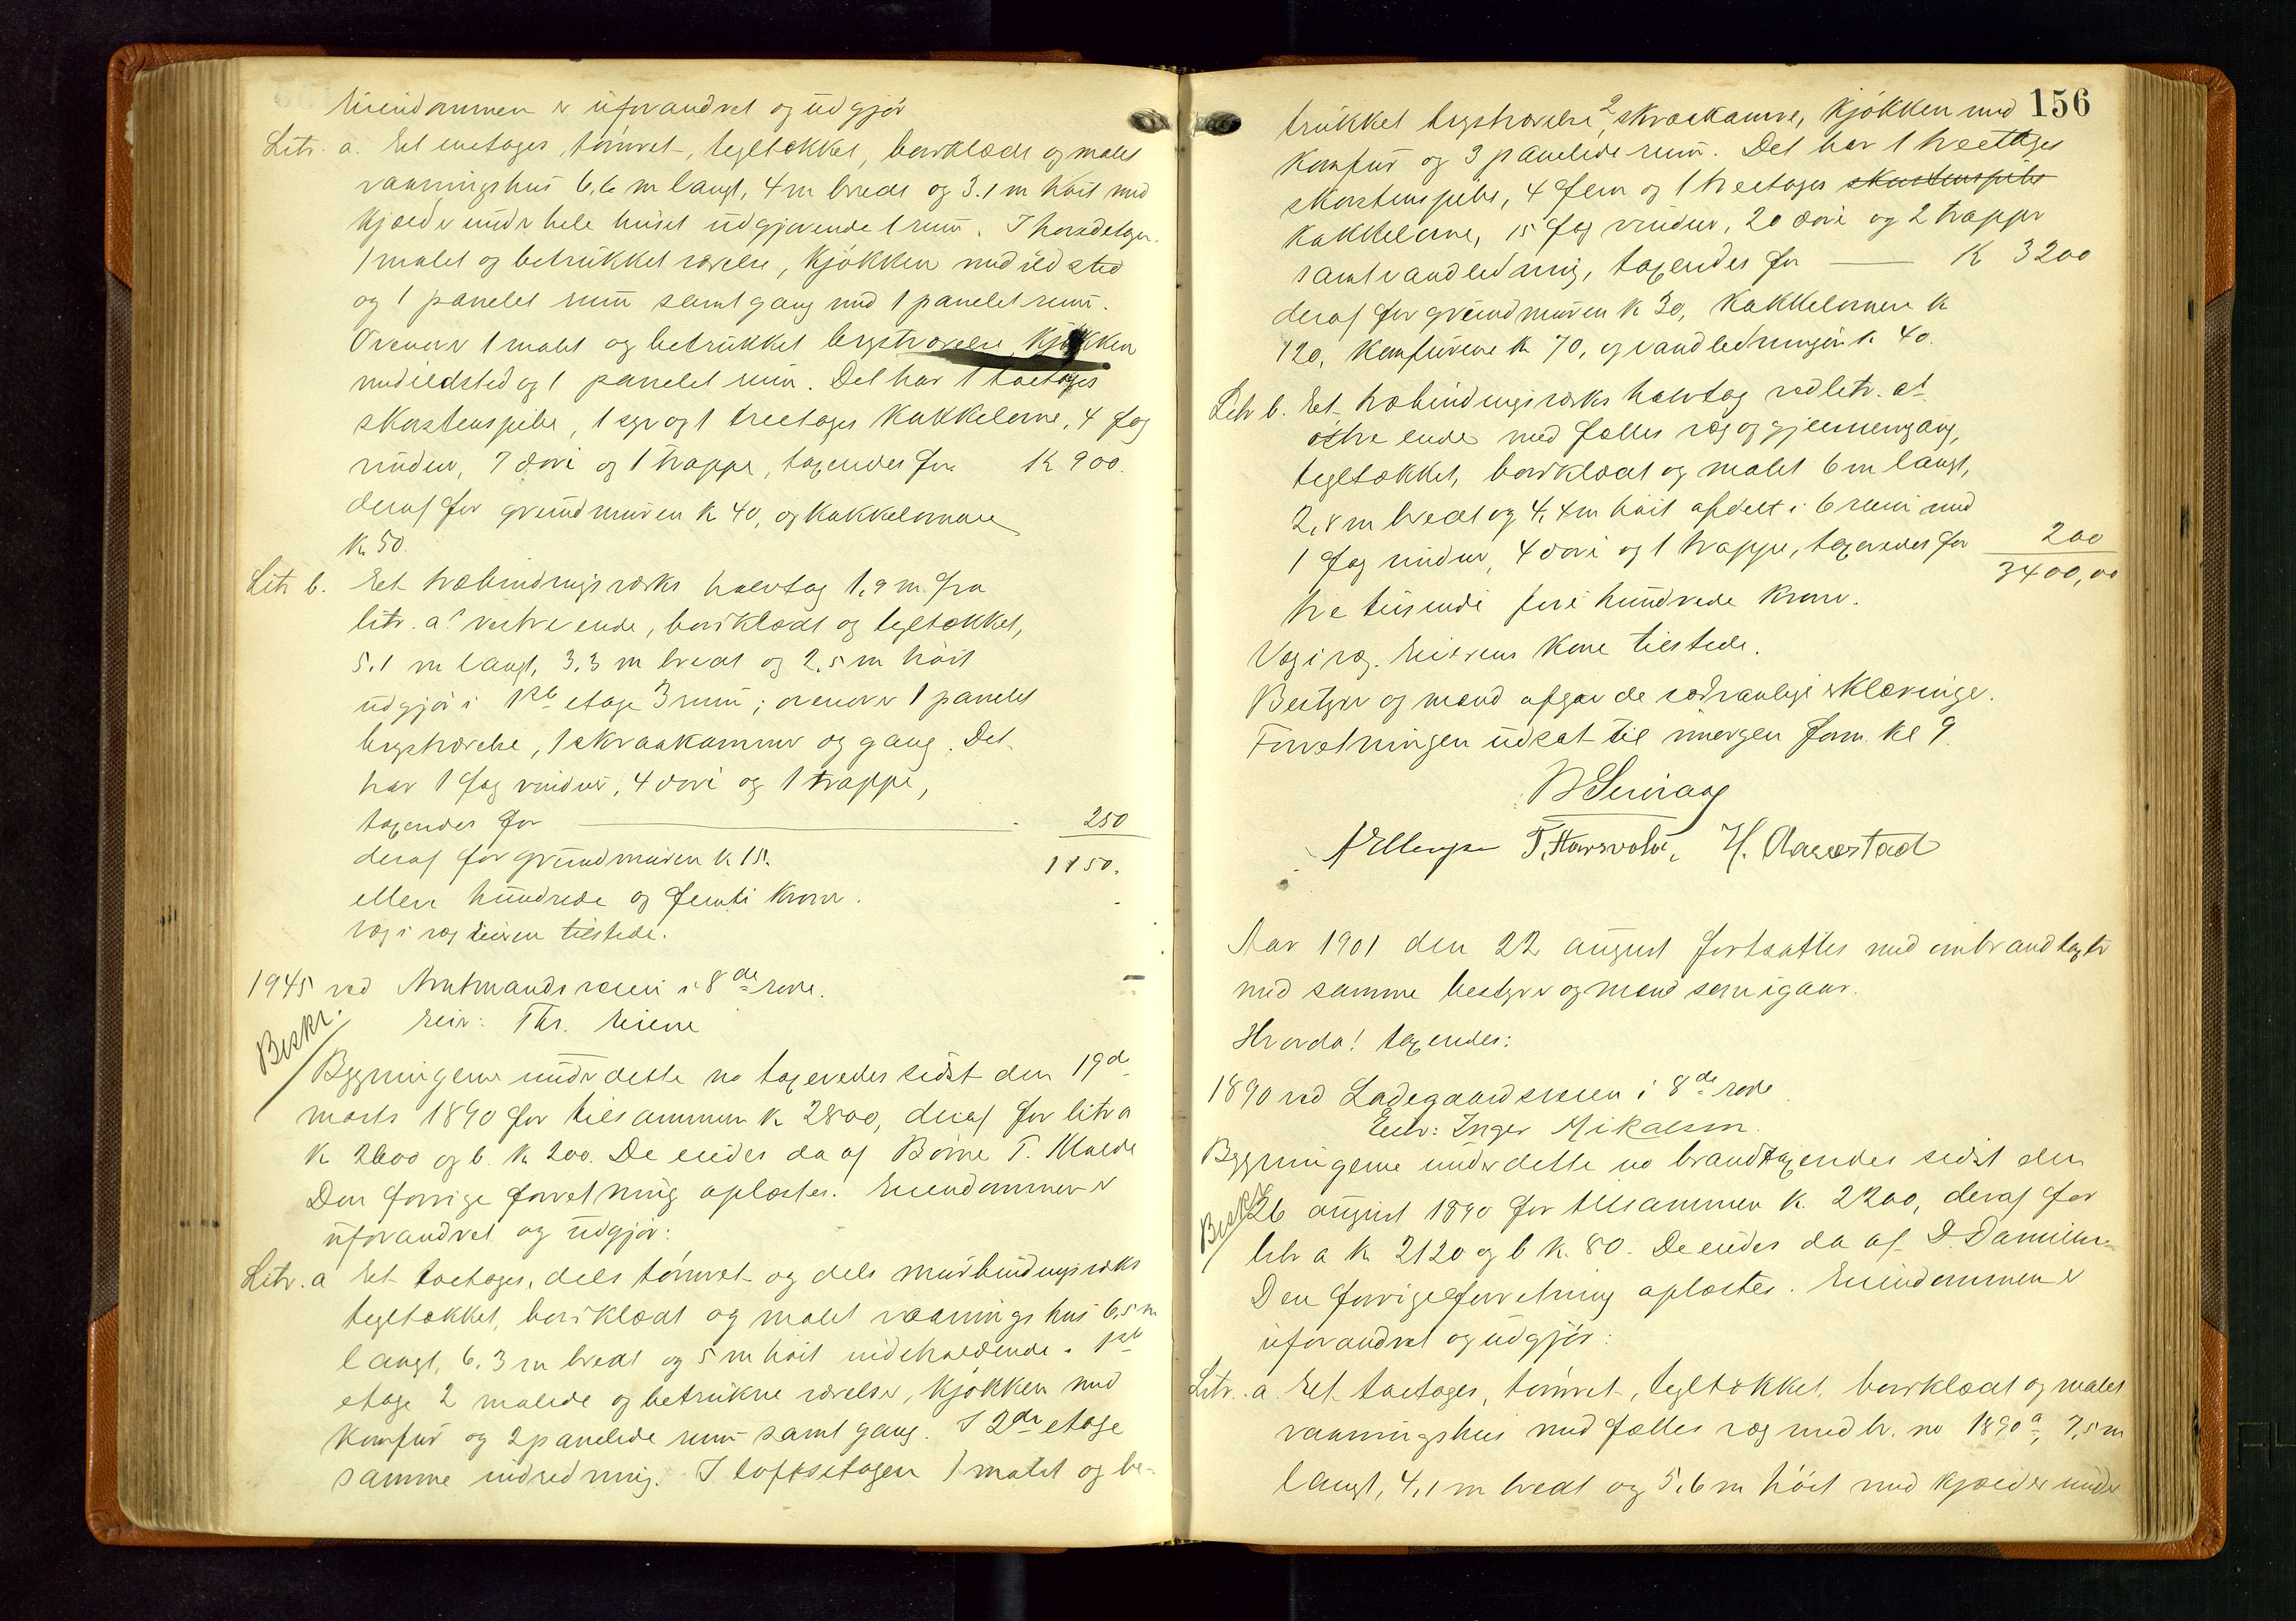 Eiendommen er uforandret og udgjör
Litr. a. Et enetages, tömret, tegltækket, bordklædt og malet
vaaningshus 6,6 m langt, 4 m bredt og 3.1 m höit med
kjælder under hele huset udgjörende 1 rum. I hovedetagen
1 malet og betrukket værelse, kjökken med ildsted
og 1 panelet rum samt gang med 1 panelet rum.
Ovenover 1 malet og betrukket kvistværelse, kjökken
med ildsted og 1 panelet rum. Det har 1 toetages
skorstenspibe, 1 og 1 treetages kakkelovne, 4 fag
vinduer, 7 döre og 1 trappe, taxeredes for K 900.
deraf for grundmuren k 40, og kakkelovnene
k. 50.
Litr b. Et træbindingsværks halvtag 1,9 m. fra
litr. a.s vestre ende, bordklædt og tegltækket,
5.1 m langt, 3.3 m bredt og 2.5 m höit
udgjör i 1ste etage 3 rum; ovenover 1 panelet
kvistværelse, 1 skraakammer og gang. Det
har 1 fag vinduer, 4 döre og 1 trappe,
taxeredes for 250
deraf for grundmuren k 15. 1150.
elleve hundrede og femti kroner.
væg i væg eieren tilstede.
1945 ved Amtmandsveien i 8de rode.
Eier: Thr. Eiene
Beskr.
Bygningerne under dette no taxeredes sidst den 19de
marts 1890 for tilsammen k 2800, deraf for litr a
k 2600 og b. k 200. De eiedes da af Börne T.
Den forrige forretning oplæstes. Eiendommen er
uforandret og udgjör:
Litr. a Et toetages, dels tömret og dels murbindingsværks
tegltækket, bordklædt og malet vaaningshus 6,5 m
langt, 6.3 m bredt og 5 m höit indeholdende i 1ste
etage 2 malede og betrukne værelser, kjökken med
komfur og 2 panelede rum samt gang. I 2den etage
samme indredning. I loftsetagen 1 malet og be-
156
trukket kvistværelse, 2 skraakamre, kjökken med
komfur og 3 panelede rum. Det har 1 treetages
skorstenspibe, 4 fem og 1 treetages skorstenspibe
kakkelovne, 15 fag vinduer, 20 döre og 2 trapper
samt vandledning, taxeredes for K 3200
deraf for grundmuren k 30, kakkelovnene k
120, komfurene k 70, og vandledningen k 40.
Litr b. Et træbindingsværks halvtag ved litr. a.s
östre ende med fælles væg og gjennemgang,
tegltækket, bordklædt og malet 6 m langt,
2,8 m bredt og 4,4 m höit afdelt i 6 rum med
1 fag vinduer, 4 döre og 1 trappe, taxeredes for 200
3400,00
tre tusende fire hundrede kroner.
Væg i væg. Eierens kone tilstede.
Bestyrer og mænd afgav de sædvanlige erklæringer.
Forretningen udsat til imorgen form. kl 9.
T. Haarsvold, H. Aarrestad
Aar 1901 den 22 august fortsattes med ombrandtaxter
med samme bestyrer og mænd som igaar.
Hvorda! taxeredes:
1890 ved Ladegaardsveien i 8de rode.
Eier: Inger Mikalsen.
Bygningerne under dette no brandtaxeredes sidst den
Beskr.
26 august 1890 for tilsammen k. 2200, deraf for
litr a k 2120 og b k. 80. De eiedes da af D. Danielsen
Den forrige forretning oplæstes. Eiendommen er
uforandret og udgjör:
Litr. a. Et toetages, tömret, tegltækket, bordklædt og malet
vaaningshus med fælles væg med br. no 1890a, 7,5 m
langt, 4,1 m bredt og 5,6 m höit med kjælder under